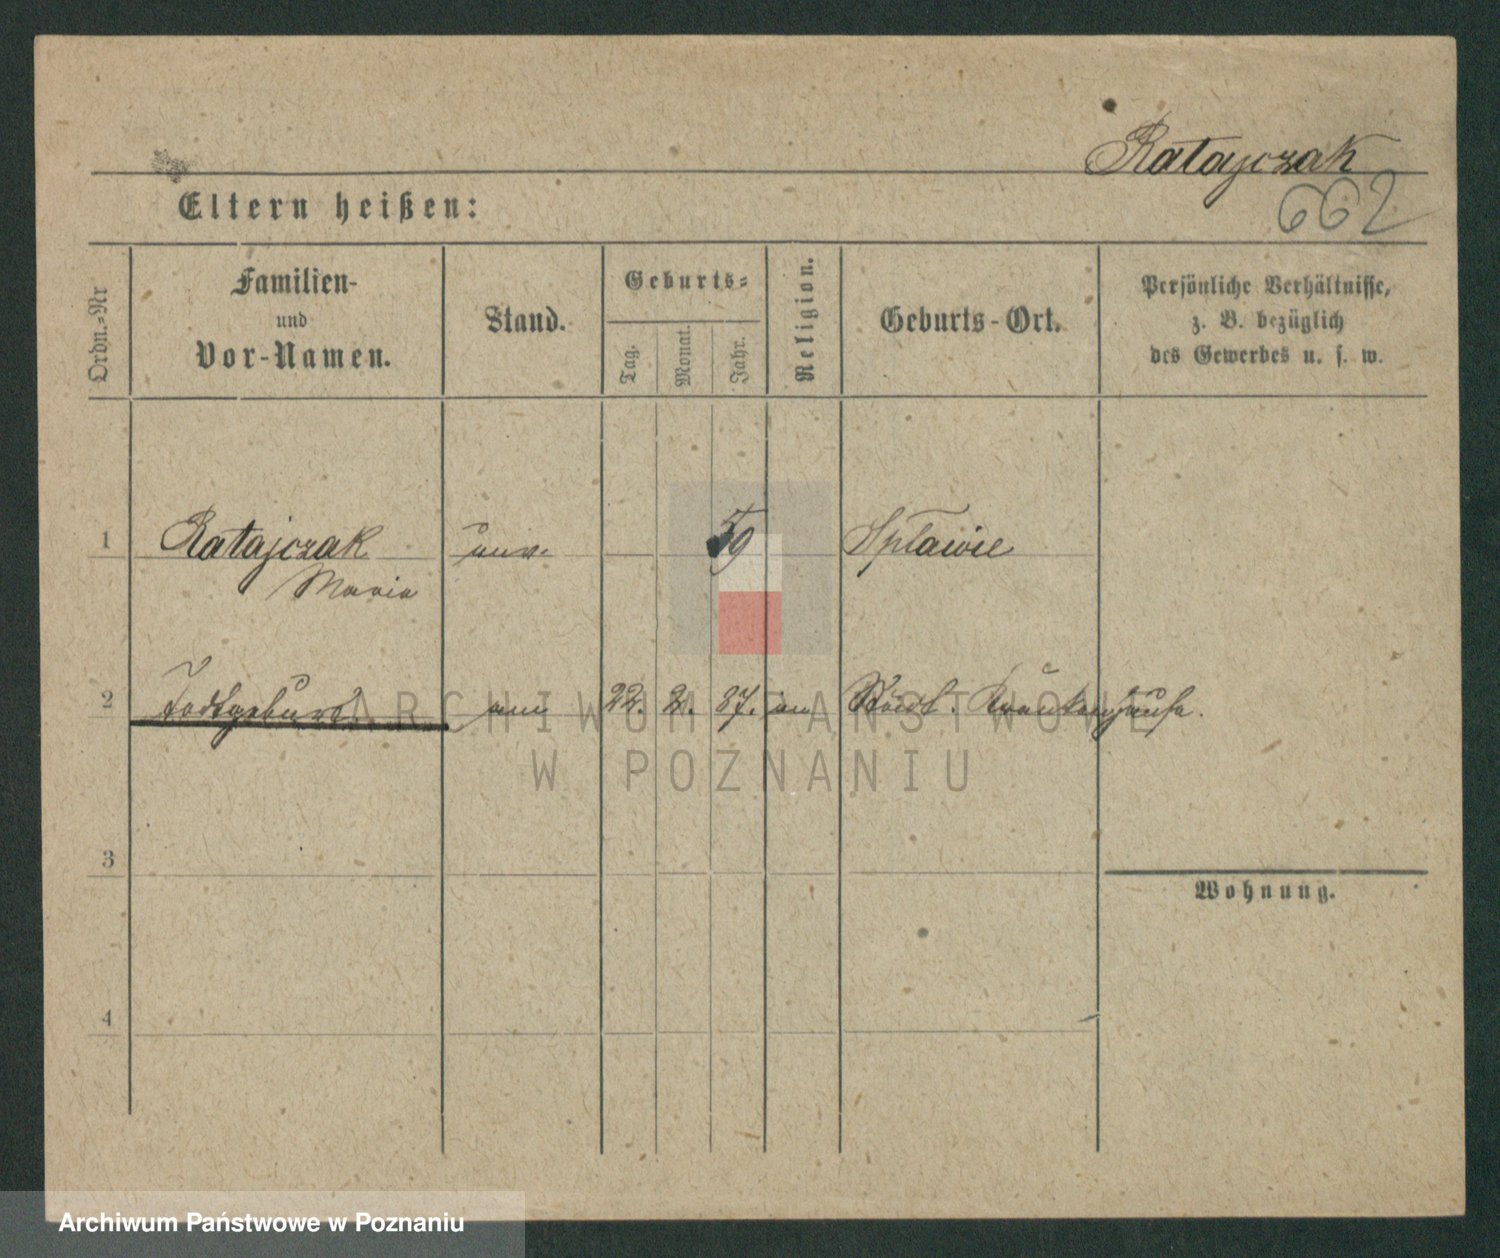 Ratajczak
662
Eltern heißen:
Ordn.-Nr
Familien-
und
Vor-Namen.
Stand.
Geburts-
Tag.
Monat.
Jahr.
Religion.
Geburts-Ort.
Persönliche Verhältnisse,
z. B. bezüglich
des Gewerbes u. s. w.
1 Ratajczak unv. 59 Spławie
Maria
2 Todtgeburt am 22. 2. 87. im Städt. Krankenhause.
ARCHIWUM PAŃSTWOWE
W POZNANIU
3
Wohnung.
4
Archiwum Państwowe w Poznaniu